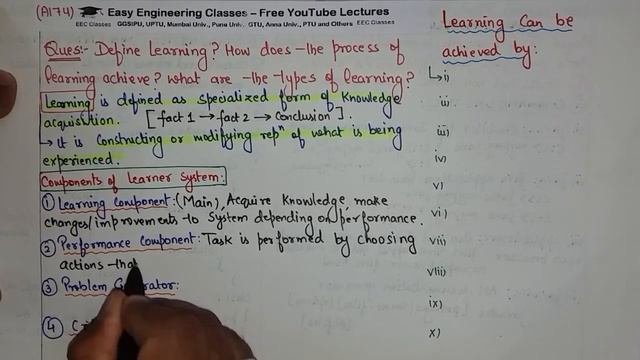 (AI74)
Easy Engineering Classes – Free YouTube Lectures
EEC Classes GGSIPU, UPTU, Mumbai Univ., Pune Univ., GTU, Anna Univ., PTU and Others EEC Classes
Ques:- Define Learning? How does the process of
learning achieve? what are the types of learning?
Learning is defined as specialized form of Knowledge
acquisition. [fact 1 → fact 2 → conclusion].
→ It is constructing or modifying repⁿ of what is being
experienced.
Components of Learner System:
① Learning component: (Main), Acquire Knowledge, make
changes/improvements to system depending on performance.
② Performance component: Task is performed by choosing
actions that
③ Problem
④
Learning Can be
achieved by:
↳ i)
ii)
iii)
iv)
v)
vi)
vii)
viii)
ix)
x)